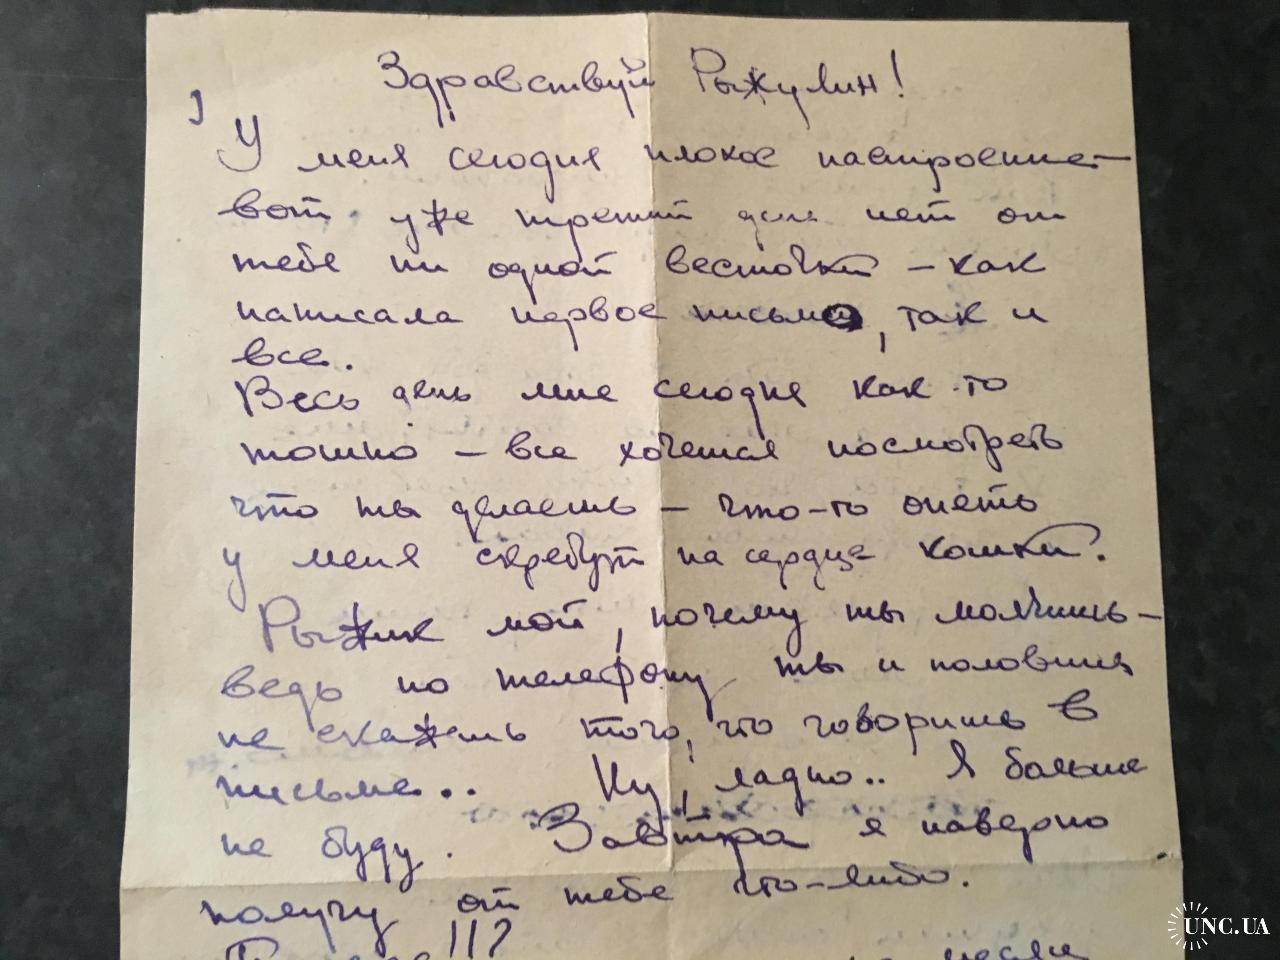 Здравствуй Рыжулин!
У меня сегодня плохое настроение —
вот уже третий день нет от
тебя ни одной весточки — как
написала первое письмо, так и
все.
Весь день мне сегодня как-то
тошно — все хочется посмотреть
что ты делаешь — что-то опять
у меня скребут на сердце кошки.
Рыжик мой, почему ты молчишь —
ведь по телефону ты и половины
не скажешь того, что говоришь в
письме.. Ну, ладно.. Я больше
не буду. Завтра я наверно
получу от тебя что-либо.
!!?
UNC.UA